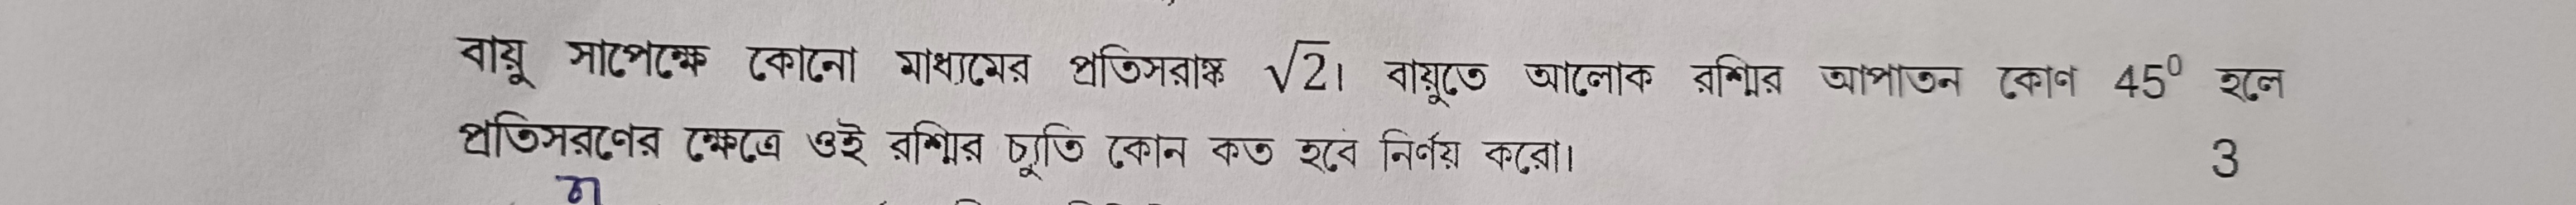 বায়ু সাপেক্ষে কোনো মাধ্যমের প্রতিসরাঙ্ক √2। বায়ুতে আলোক রশ্মির আপাতন কোণ 45⁰ হলে
প্রতিসরণের ক্ষেত্রে ওই রশ্মির চ্যুতি কোন কত হবে নির্ণয় করো। 3